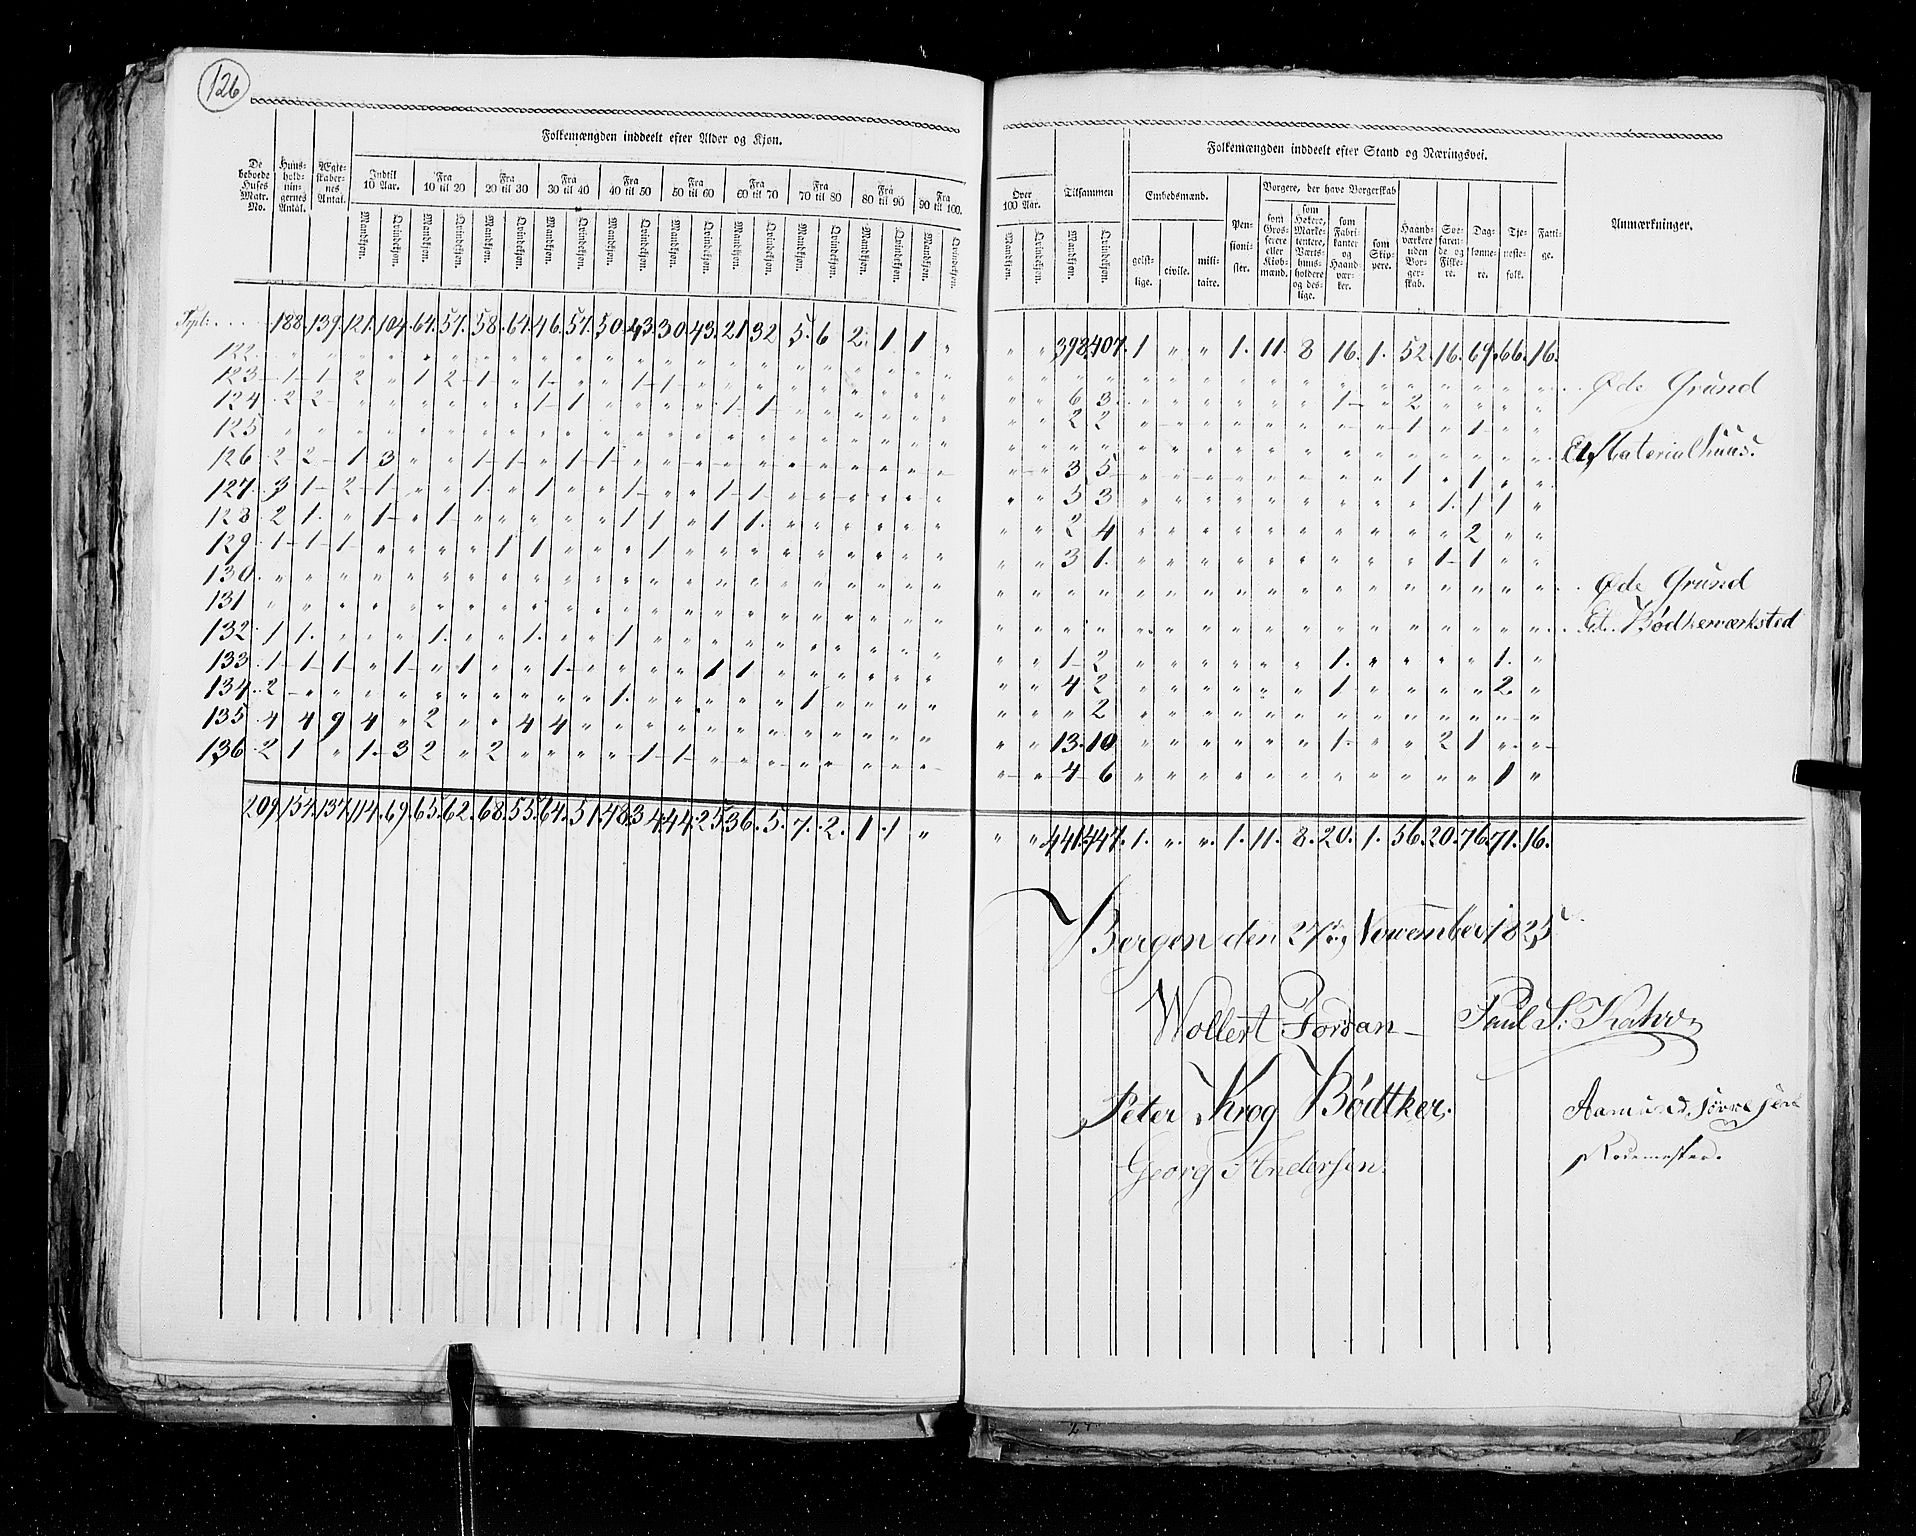 126
Folkemængden inddeelt efter Alder og Kjøn.
De beboede Huses Matr. No. | Huus-hold-nin-gernes Antal. | Ægte-skaber-nes Antal. | Indtil 10 Aar. | Fra 10 til 20 | Fra 20 til 30 | Fra 30 til 40 | Fra 40 til 50 | Fra 50 til 60 | Fra 60 til 70 | Fra 70 til 80 | Fra 80 til 90 | Fra 90 til 100.
Mandkjøn. Qvindekjøn. Mandkjøn. Qvindekjøn. Mandkjøn. Qvindekjøn. Mandkjøn. Qvindekjøn. Mandkjøn. Qvindekjøn. Mandkjøn. Qvindekjøn. Mandkjøn. Qvindekjøn. Mandkjøn. Qvindekjøn. Mandkjøn. Qvindekjøn. Mandkjøn. Qvindekjøn.
188. 139. 121. 104. 64. 57. 58. 61. 46. 57. 50. 43. 30. 43. 21. 32 5. 6 2. 1 1 "
122. " " " " " " " " " " " " " " " " " " " " " "
123 1 1 2 " 1 2 1 " 1 " " 1 1 " " " " " " " " "
124 2 2 " " " " " " 1 1 " " " " 1 1 " " " " " "
125 " " " " " " " " " " " " " " " " " " " " " "
126 2 2 1 3 " " 1 1 " 1 1 " " " " " " " " " " "
127. 3 1 2 1 " " 1. " 1 " " 1 " " 1 1 " " " " " "
128 2 1. " 1 " 1 " " " " " 1 1 " 1 1. " " " " " "
129 1 1 1 " " " " 1 1 " " " 1 " " " " " " " " "
130. " " " " " " " " " " " " " " " " " " " " " "
131 " " " " " " " " " " " " " " " " " " " " " "
132 1 1. " " " 1. " " 1. " " 1 " " " " " " " " " "
133 1 1 1 " 1 " 1 " " 1 " " " " 1 1 " " " " " "
134 2 " " " " " " " " " " 1. " " " " " 1 " " " "
135 4 4 9 4 " 2 " " 4 4 " " " " " " " " " " " "
136 2 1 " 1. 3 2 " 2 " " " " 1 1 " " " " " " " "
209. 154. 137. 114. 69. 65. 62. 68. 55. 64. 51. 48. 34. 44. 25. 36. 5. 7. 2. 1 1 "
Folkemængden inddeelt efter Stand og Næringsvei.
Over 100 Aar. | Tilsammen | Embedsmænd. | Pen-sioni-ster. | Borgere, der have Borgerskab | Haand-værkere uden Bor-ger-skab. | Søe-faren-de og Fiske-re. | Dag-lønne-re. | Tje-neste-folk. | Fatti-ge. | Anmærkninger.
Mandkjøn. Qvindekjøn. Mandkjøn. Qvindekjøn. geistlige. civile. militaire. som Grosserere eller Kiøbmænd. som Høkere, Marketentere, Værtshuusholdere og deslige. som Fabrikanter og Haandværker. som Skippere.
" " 398. 407. 1 " " 1. 11. 8 16. 1. 52. 16. 69. 66. 16.
" " " " " " " " " " " " " " " " " Øde Grund
" " 6 3. " " " " " " 1 " 2 " " " "
" " 2 2 " " " " " " " " 1 " 1 " "
" " " " " " " " " " " " " " " " " Et Materialhuus.
" " 3 5 " " " " " " " " 1 " 1 " "
" " 5 3 " " " " " " " " " 1. 1 1 "
" " 2 4 " " " " " " " " " " 2 " "
" " 3 1. " " " " " " " " " 1 1 " "
" " " " " " " " " " " " " " " " " Øde Grund
" " " " " " " " " " " " " " " " " Et Bødkerværksted
" " 1 2 " " " " " " 1. " " " " 1. "
" " 4 2 " " " " " " 1 " " " " 2. "
" " " 2 " " " " " " " " " " " " "
" " 13. 10 " " " " " " 1. " " 2 1 " "
" " 4 6 " " " " " " " " " " " 1 "
" " 441. 447. 1. " " 1. 11. 8. 20. 1. 56. 20. 76. 71. 16.
Bergen den 27 November 1825
Wollert Jordan
Peter Krog Bødtker.
Georg Andersen.
Rodemester.